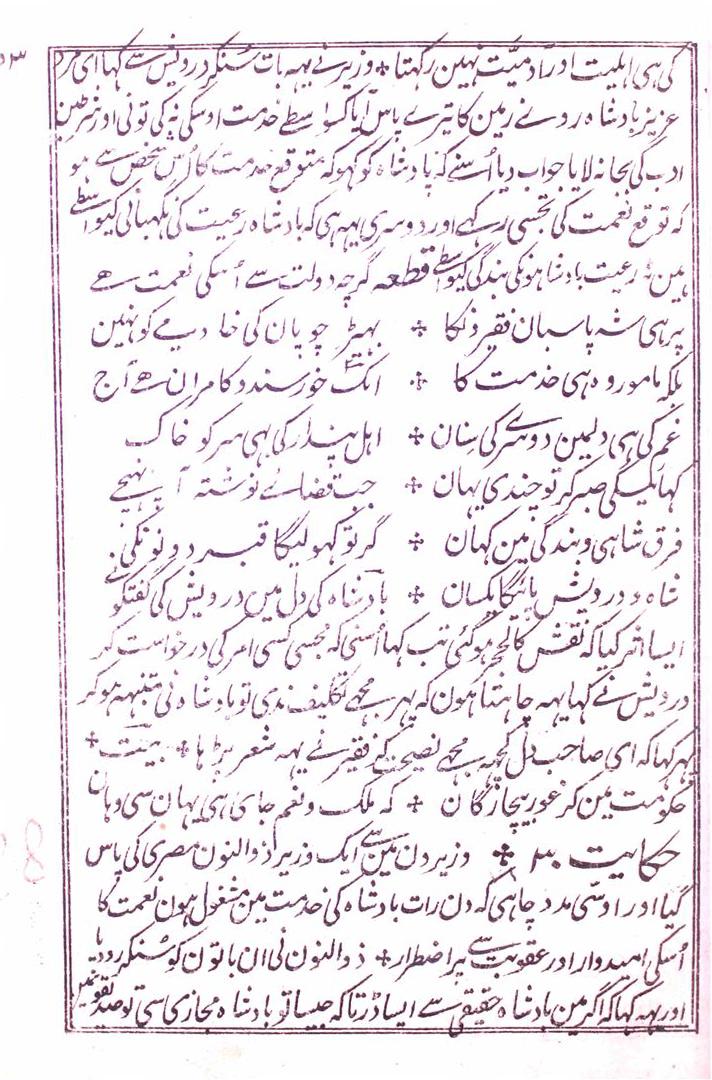 کی ہی اہلیت اور آدمیّت نہین رکھتا ٭ وزیر نے یہہ بات سُنکر درویش سے کہا ای مرد
عزیز بادشاہ روے زمین کا تیرے پاس آیا کسواسطے خدمت اوسکی نہ کی تونی اور شرطین
ادب کی بجا نہ لایا جواب دیا اُسنے کہ بادشاہ کو کہو کہ متوقع خدمت کا اُس شخص سے ہو
کہ توقع نعمت کی تجسی رکہے اور دوسری یہہ ہی کہ بادشاہ رعیت کی نگہبانی کیواسطے
ہین نہ رعیت بادشاہونکی بندگی کیواسطے قطعہ گرچہ دولت سے اُسکی نعمت ہے
پر ہی شہ پاسبان فقیرونکا ٭ بہیڑ چوپان کی خادمے کو نہین
بلکہ مامور وہ ہی خدمت کا ٭ ایک خورسند و کامران ہے آج
غم کی ہی دلمین دوسرے کی سنان ٭ اہل پندار کی ہی سر کو خاک
کہائیگی صبر کر تو چندی یہان ٭ جب قضائے نوشتہ آ پہنچے
فرق شاہی و بندگی مین کہان ٭ گر تو کہولیگا قبر دونونکی
شاہ و درویش پائیگا یکسان ٭ بادشاہ کی دل مین درویش کی گفتگو نے
ایسا اثر کیا کہ نقش کالحجر ہو گئی تب کہا اُسنی کہ مجسی کسی امر کی درخواست کر
درویش نے کہا یہہ چاہتا ہون کہ پہر مجھے تکلیف ندی تو بادشاہ نی متنبہہ ہو کر
پہر کہا کہ ای صاحب دل کچہہ مجھے نصیحت کر فقیر نے یہہ شعر پڑہا ٭ بیت ٭
حکومت مین کر غور بیچارگان ٭ کہ ملک و نعم جای ہی یہان سی وہان
حکایت ۳۰ ٭ وزیرون مین سے ایک وزیر ذوالنون مصری کی پاس
گیا اور اوسی مدد چاہی کہ دن رات بادشاہ کی خدمت مین مشغول ہون نعمت کا
اُسکی امیدوار اور عقوبت سے پر اضطرار ٭ ذوالنون نی ان باتون کو سُنکر رو دیا
اور یہہ کہا کہ اگر مین بادشاہ حقیقی سے ایسا ڈرتا کہ جیسا تو بادشاہ مجازی سی تو صدیقونمین